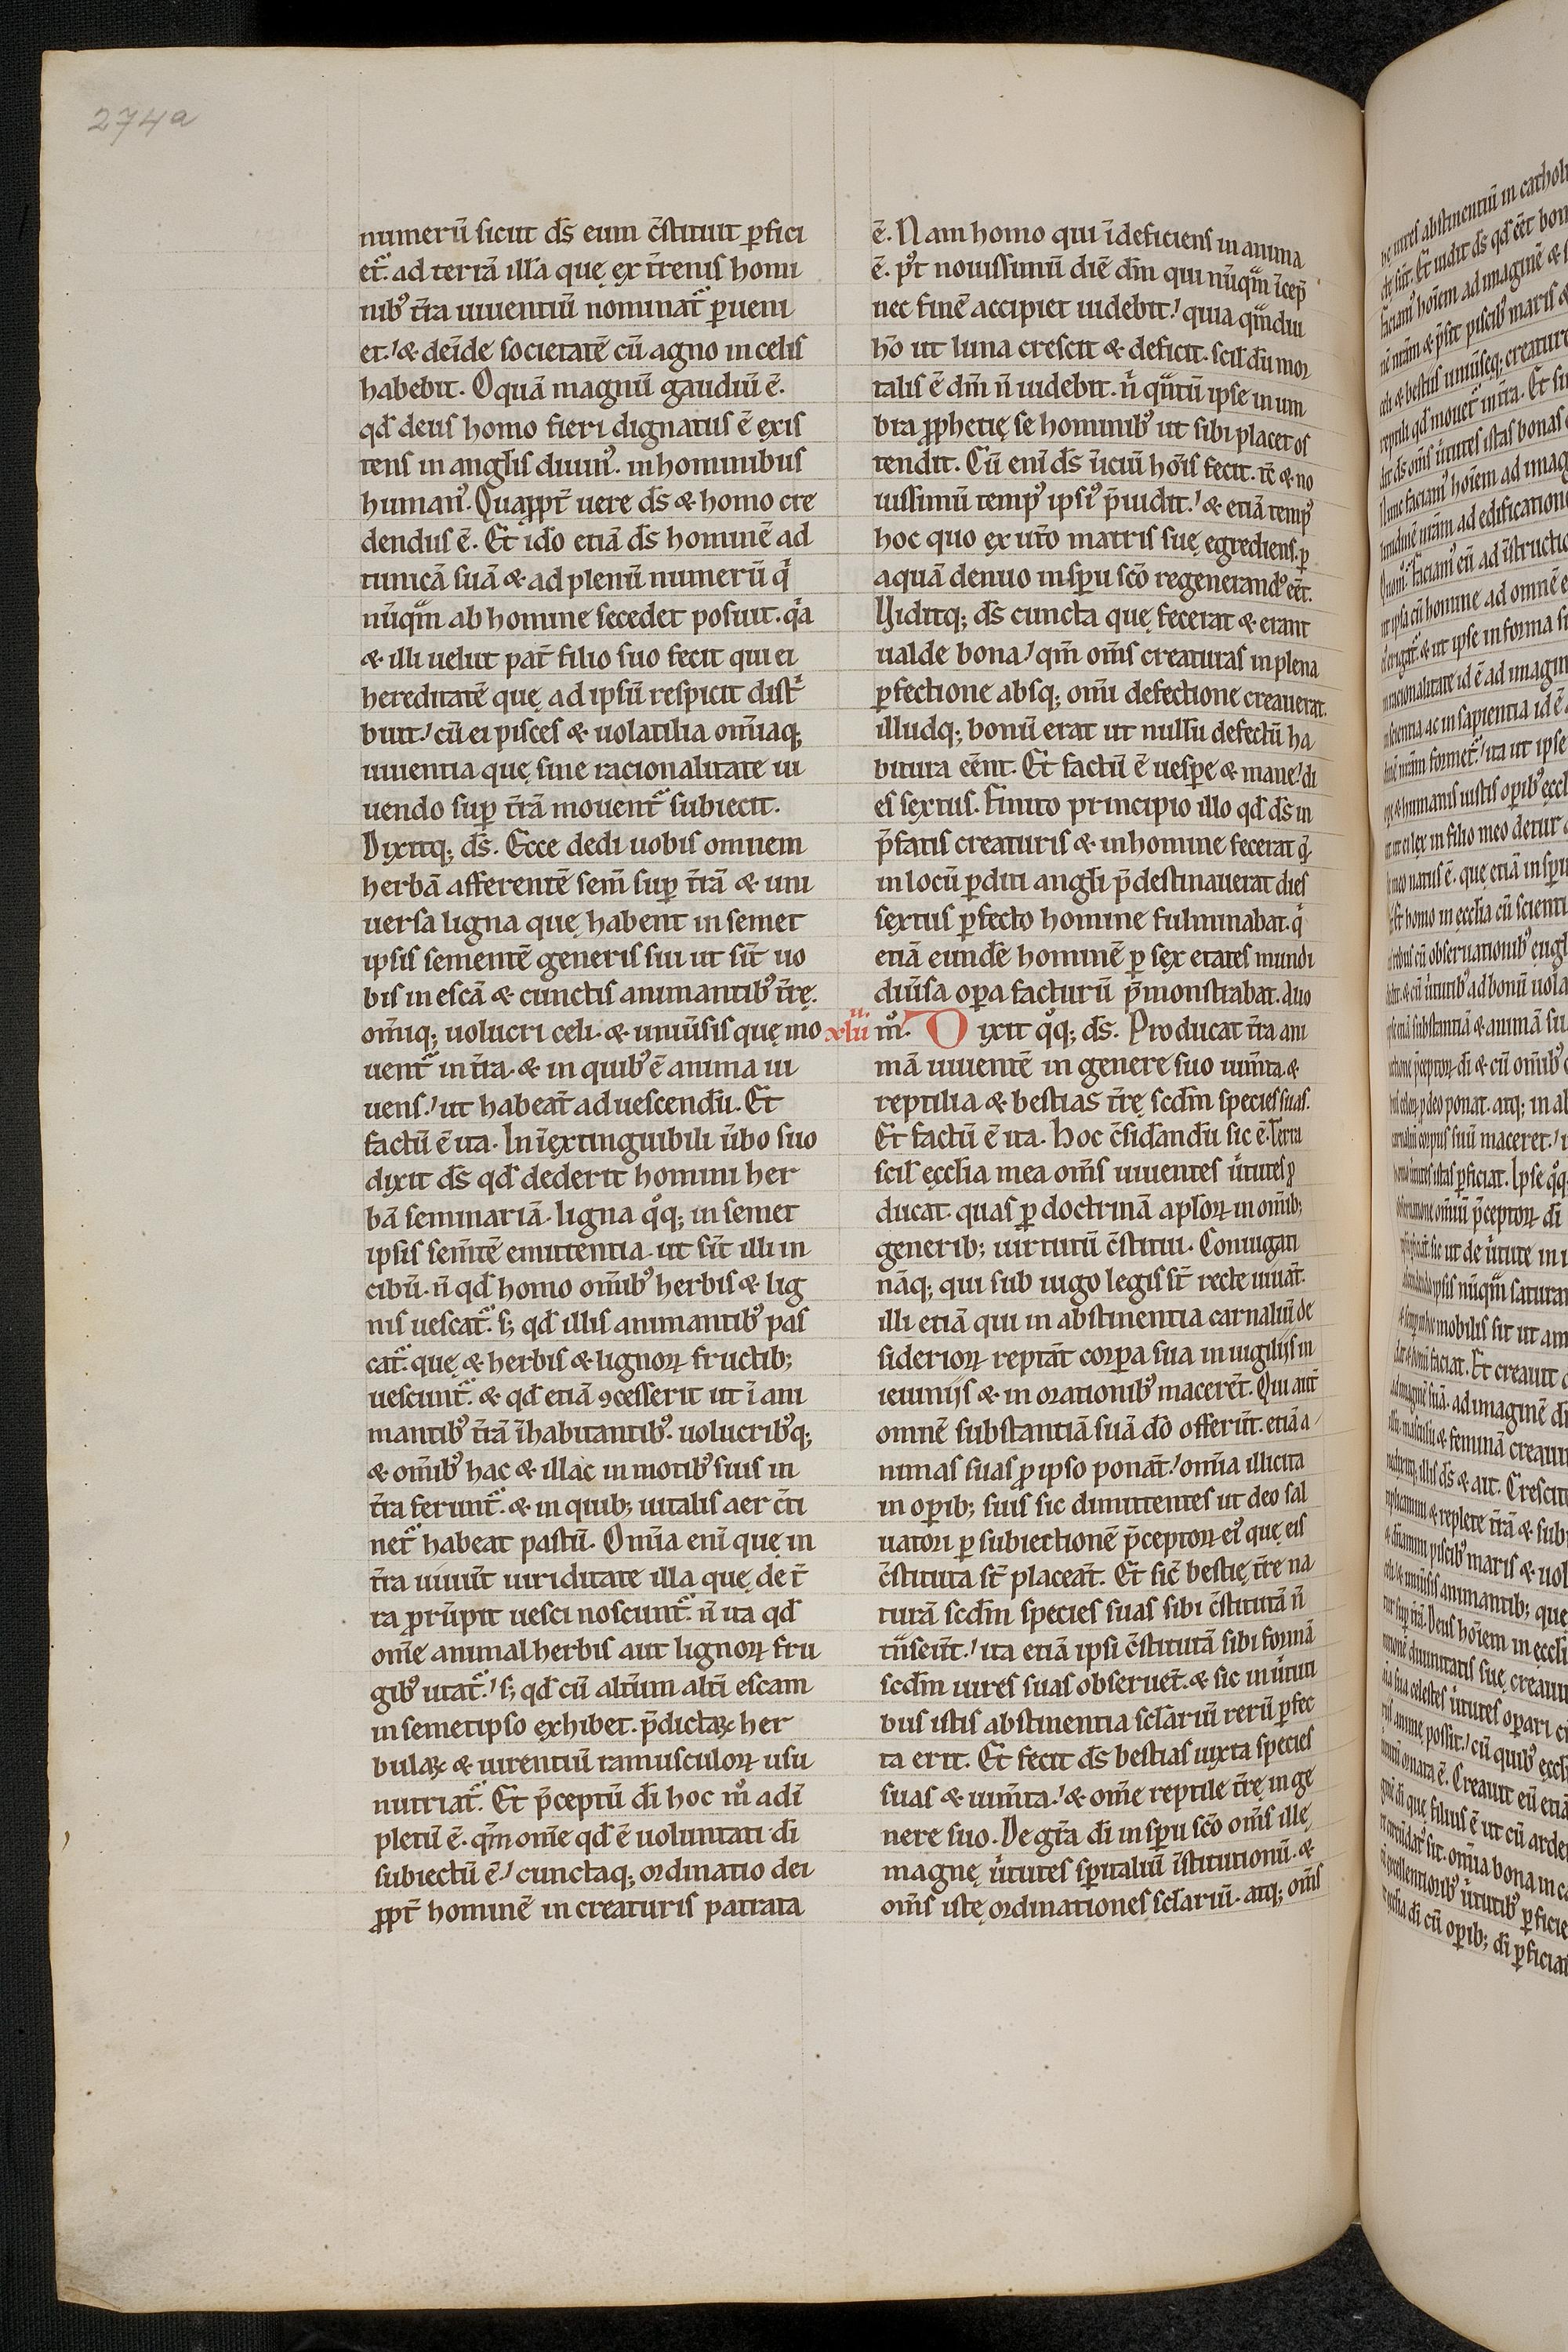 274a
numerū sicut ds̄ eum c̄stituit ꝑfici
et᷑. ad teriā illā quę ex t̄renis homi
nibꝰ t̄ra uiuentiū nominat᷑ ꝑueni
et. & deīde societatē cū agno in celis
habebit. O quā magnū gaudiū ē.
qd̄ deus homo fieri dignatus ē exis
tens in angl̄is diuinꝰ. in hominibus
humanꝰ. Quaꝓpt̄ uere ds̄ & homo cre
dendus ē. Et id̄o etiā ds̄ hominē ad
tunicā suā & ad plenū numerū qͥ
nūqͣm ab homine secedet posuit. qͥa
& illi uelut pat̄ filio suo fecit qui ei
hereditatē quę ad ipsū respicit distͥ
buit. cū ei pisces & uolatilia om̄iaq;
uiuentia quę sine racionalitate ui
uendo suꝑ t̄rā mouent᷑ subiecit.
Dixitq; ds̄. Ecce dedi uobis omnem
herbā afferentē sem̄ suꝑ t̄rā & uni
uersa ligna quę habent in semet
ipsis sementē generis sui ut sīt uo
bis in escā & cunctis animantibꝰ t̄rę.
om̄iq; uolucri celi. & uniūsis quę mo
uent᷑ in t̄ra. & in quibꝰ ē anima ui
uens. ut habeat̄ ad uescend̄u. Et
factū ē ita. In īextinguibili ūbo suo
dixit ds̄ qd̄ dederit homini her
bā seminariā. ligna qͦq; in semet
ipsis sem̄tē emittentia. ut sīt illi in
cibū. n̄ qd̄ homo om̄ibꝰ herbis & lig
nis uescat᷑. s; qd̄ illis animantibꝰ pas
cat᷑ quę & herbis & lignoꝝ fructib;
uescunt᷑. & qd̄ etiā ꝯcesserit ut ī ani
mantibꝰ t̄rā īhabitantibꝰ. uolucribꝰq;
& om̄ibꝰ hac & illac in motibꝰ suis in
t̄ra ferunt᷑. & in quib; uitalis aer c̄ti
net᷑ habeat pastū. Om̄ia eni quę in
t̄ra uiuūt uiriditate illa quę de t̄
ra ꝓrūpit uesci noscunt᷑. n̄ ita qd̄
om̄e animal herbis aut lignoꝝ fru
gibꝰ utat᷑. s; qd̄ cū alt̄um alti escam
in semetipso exhibet. p̄dictaꝝ her
bulaꝝ & uirentiū ramusculoꝝ usu
nutriat᷑. Et p̄ceptū dī hoc mͦ adī
pletū ē. qm̄ om̄e qd̄ ē uoluntati dī
subiectū ē. cunctaq; ordinatio dei
ꝓpt̄ hominē in creaturis patrata
ē. Nam homo qui īdeficiens in anima
ē. pꝰt nouissimū diē dm̄ qui nūqͣm īcep̄
nec finē accipiet uidebit. quia qͣmdiu
hō ut luna crescit & deficit. scil̄ dū mor
talis ē dm̄ n̄ uidebit. nͥ qͣntū ipse in um
bra ꝓphetię se hominibꝰ ut sibi placet os
tendit. Cū eni ds̄ ūiciū hoīs fecit. tc̄ & no
uissimū tempꝰ ipsiꝰ p̄uidit. & etiā tempꝰ
hoc quo ex ut̄o matris suę egrediens. ꝑ
aquā denuo in sp̄u sc̄o regenerandꝰ eēt.
Viditq; ds̄ cuncta quę fecerat & erant
ualde bona. qm̄ om̄s creaturas in plena
ꝑfectione absq; om̄i defectione creauerat.
illudq; bonū erat ut nullū defectū ha
bitura eēnt. Et factū ē uesꝑe & mane. di
es sextus. Finito principio illo qd̄ ds̄ in
p̄fatis creaturis & in homine fecerat qͥ
in locū ꝑditi angl̄i p̄destinauerat dies
sextus ꝑfecto homine fulminabat. qͥ
etiā eundē hominē ꝑ sex etates mundi
diūsa oꝑa facturū p̄monstrabat. Quo
xliii mͦ. Dixit qͦq; ds̄. Producat t̄ra ani
mā uiuentē in genere suo ium̄ta. &
reptilia & bestias t̄rę scd̄m species suas.
Et factū ē ita. Hoc c̄sidand̄u sic ē. Terra
scil̄ ęccl̄ia mea om̄s uiuentes ūtutes ꝓ
ducat. quas ꝑ doctrinā apl̄oꝝ in om̄ib;
generib; uirtutū c̄stitui. Coniugati
nāq; qui sub iugo legis st̄ recte uiuāt.
illi etiā qui in abstinentia carnaliū de
sidertioꝝ reptāt corꝑa sua in uigilijs in
ieiunijs & in orationibꝰ macerēt. Qui aut̄
omnē substantiā suā dō offerūt. etiā a
nimas suas ꝓ ipso ponāt. om̄ia illicita
in oꝑib; suis sic dimittentes ut deo sal
uatori ꝑ subiectionē p̄ceptoꝝ eiꝰ quę eis
c̄stituta st̄ placeāt. Et sic̄ bestię t̄rę na
turā scd̄m species suas sibi c̄stitutā n̄
tn̄seūt. ita etiā ipsi c̄stitutā sibi formā
scd̄m uires suas obseruēt. & sic in ūtuti
bus istis abstinentia scl̄ariū rerū ꝑfec
ta erit. Et fecit ds̄ bestias iuxta species
suas & ium̄ta. & om̄e reptile t̄rę in ge
nere suo. De gr̄a dī in sp̄u sc̄o om̄s illę
magnę ūtutes sp̄italiū īstitutionū. &
om̄s istę ordinationes scl̄ariū. atq; om̄s